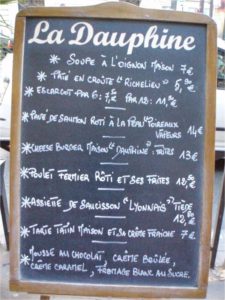 La Dauphine
* SOUPE À L'OIGNON MAISON 7€
* PÂTÉ EN CROÛTE "RICHELIEU"
* ESCARGOT PAR 6: PAR 12:
* PAVÉ DE SAUMON RÔTI À LA PEAU POIREAUX
VAPEURS 14€
* CHEESE BURGER MAISON "DAUPHINE" FRITES 13€
* POULET FERMIER RÔTI ET SES FRITES
* ASSIETTE DE SAUCISSON "LYONNAIS" TIEDE
* TARTE TATIN MAISON ET SA CRÈME FRAICHE 7€
* MOUSSE AU CHOCOLAT, CRÈME BRÛLÉE,
CRÈME CARAMEL, FROMAGE BLANC AU SUCRE.